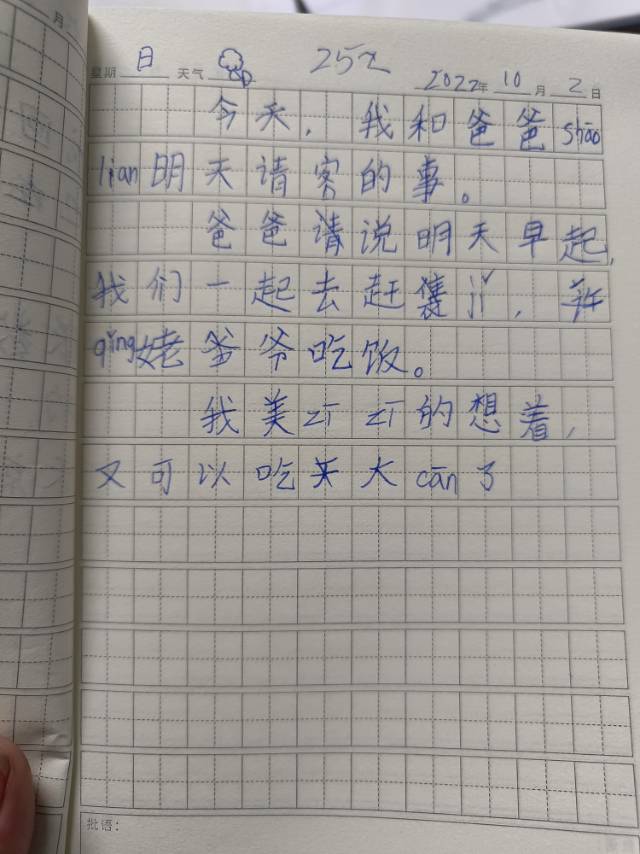 月
星期 日 天气 252 2022年 10 月 2 日
今天，我和爸爸shāo
lian明天请客的事。
爸爸请说明天早起，
我们一起去赶集jí，
qǐng姥爷爷吃饭。
我美zī zī的想着，
又可以吃天大cān了
批语：